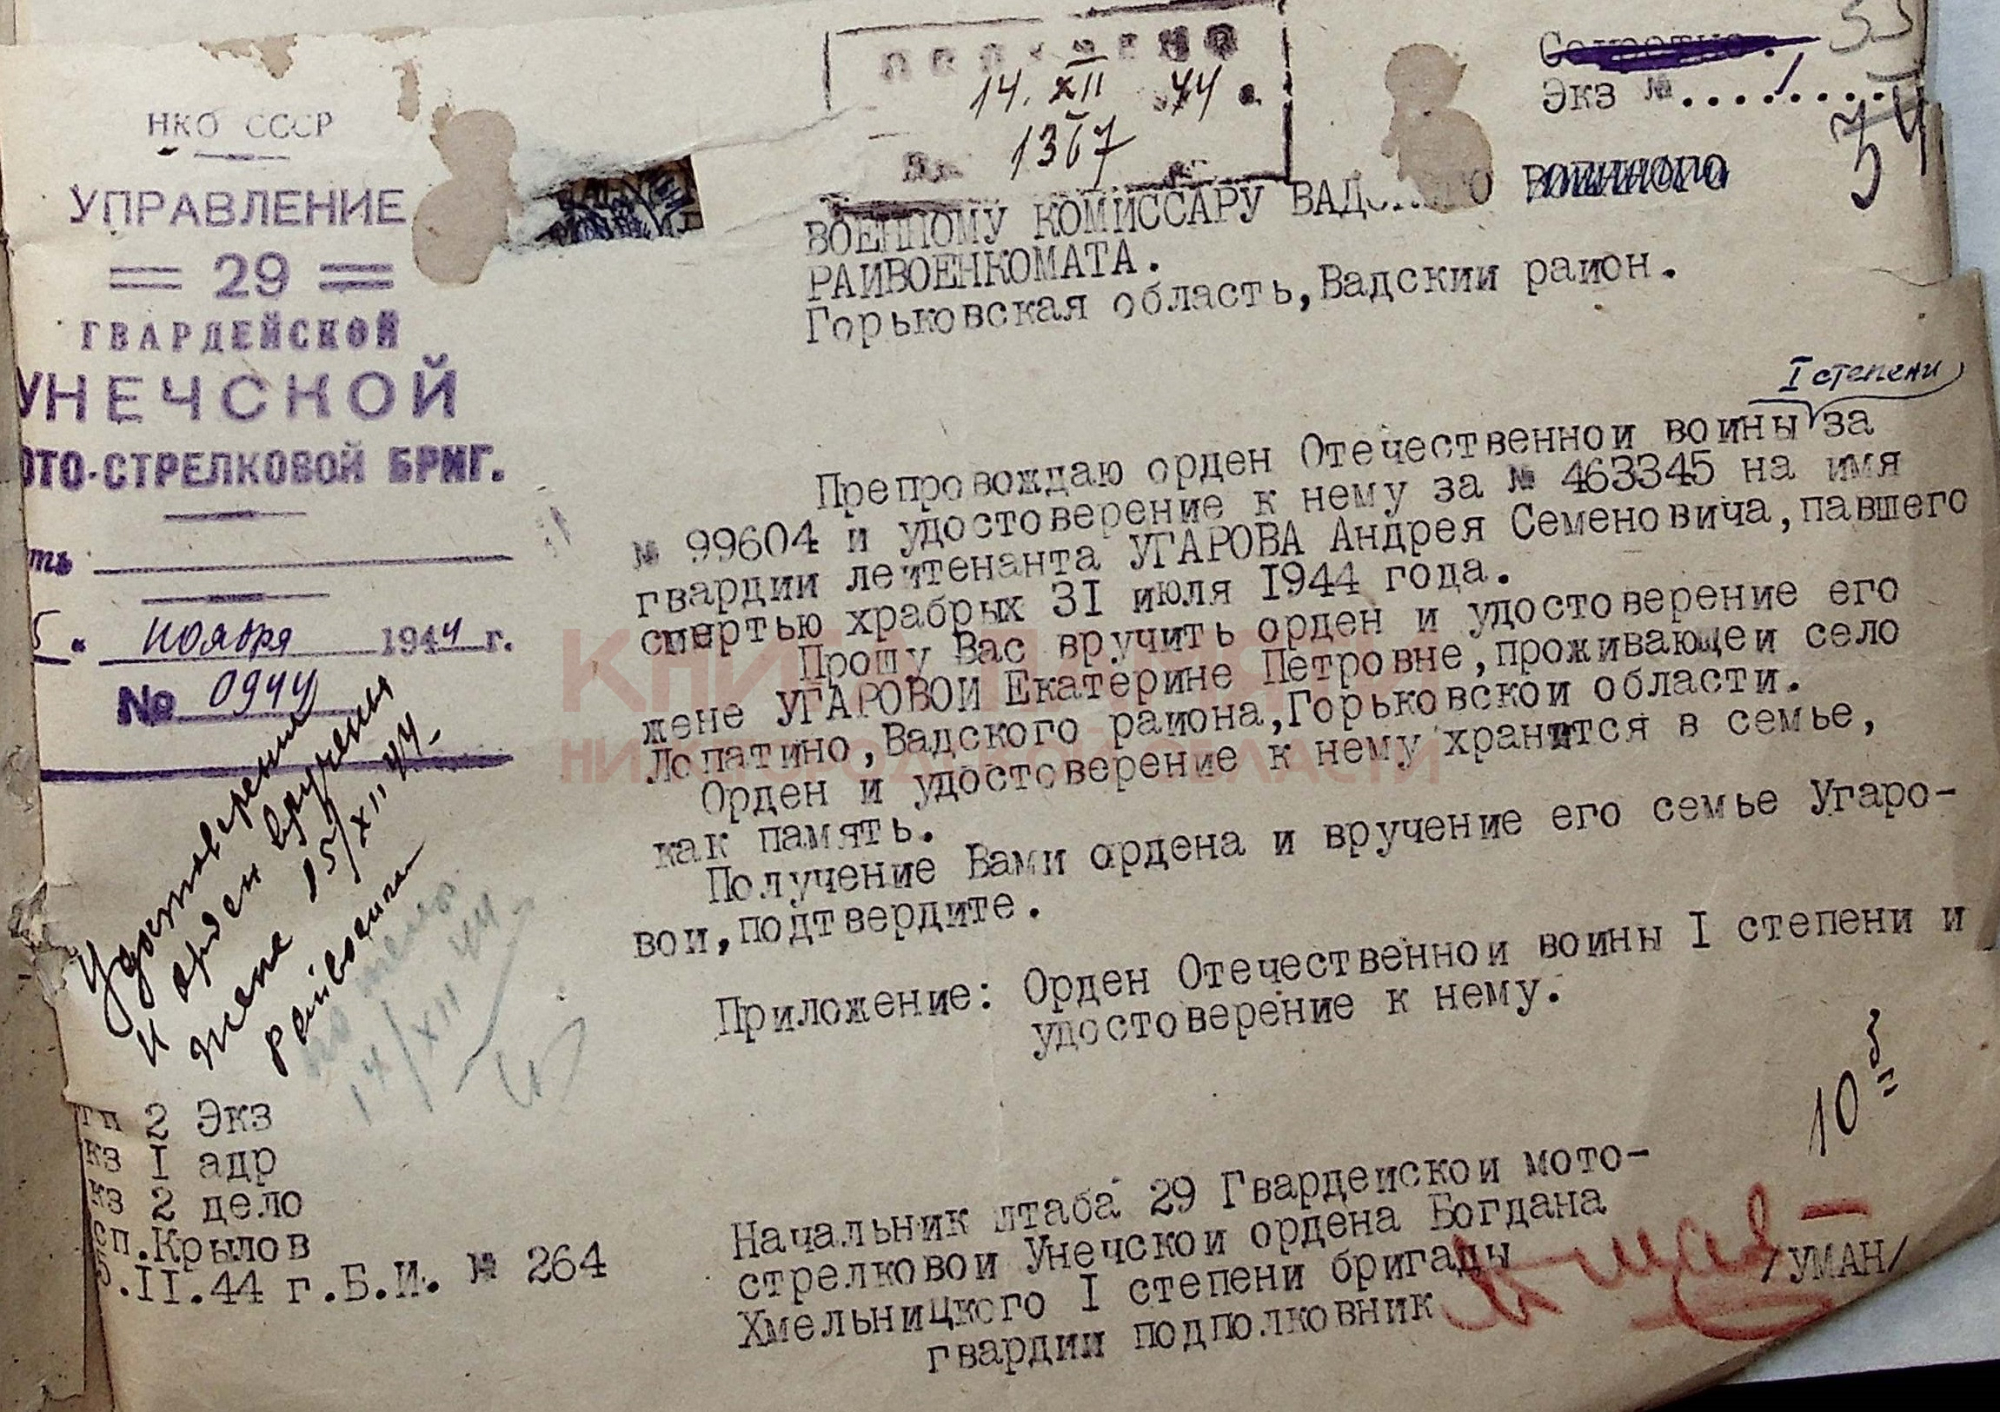 НКО СССР
УПРАВЛЕНИЕ
29
ГВАРДЕЙСКОЙ
УНЕЧСКОЙ
ОТО-СТРЕЛКОВОЙ БРИГ.
ть
5 " ноября 1944 г.
№ 0944
Удостоверении
и орден вручены
жене 15/XII 44.
14/XII 44
ПОЛУЧЕНО
14. XII 44.
1367
Секретно.
Экз № ....1........
55
54
ВОЕННОМУ КОМИССАРУ ВАДСКОГО ВОЕННОГО
РАИВОЕНКОМАТА.
Горьковская область,Вадскии раион.
I степени
Препровождаю орден Отечественнои воины за
№ 99604 и удостоверение к нему за № 463345 на имя
гвардии леитенанта УГАРОВА Андрея Семеновича,павшего
смертью храбрых 3I июля I944 года.
Прошу Вас вручить орден и удостоверение его
жене УГАРОВОИ Екатерине Петровне,проживающеи село
Лопатино,Вадского раиона,Горьковскои области.
Орден и удостоверение к нему хранится в семье,
как память.
Получение Вами ордена и вручение его семье Угаро-
вои,подтвердите.
Приложение: Орден Отечественнои воины I степени и
удостоверение к нему.
10
тп 2 Экз
кз I адр
кз 2 дело
сп.Крылов
5.II.44 г.Б.И. № 264
Начальник штаба 29 Гвардеискои мото-
стрелковои Унечскои ордена Богдана
Хмельницкого I степени бригады
гвардии подполковник
/УМАН/
КНИГА ПАМЯТИ
НИЖЕГОРОДСКОЙ ОБЛАСТИ